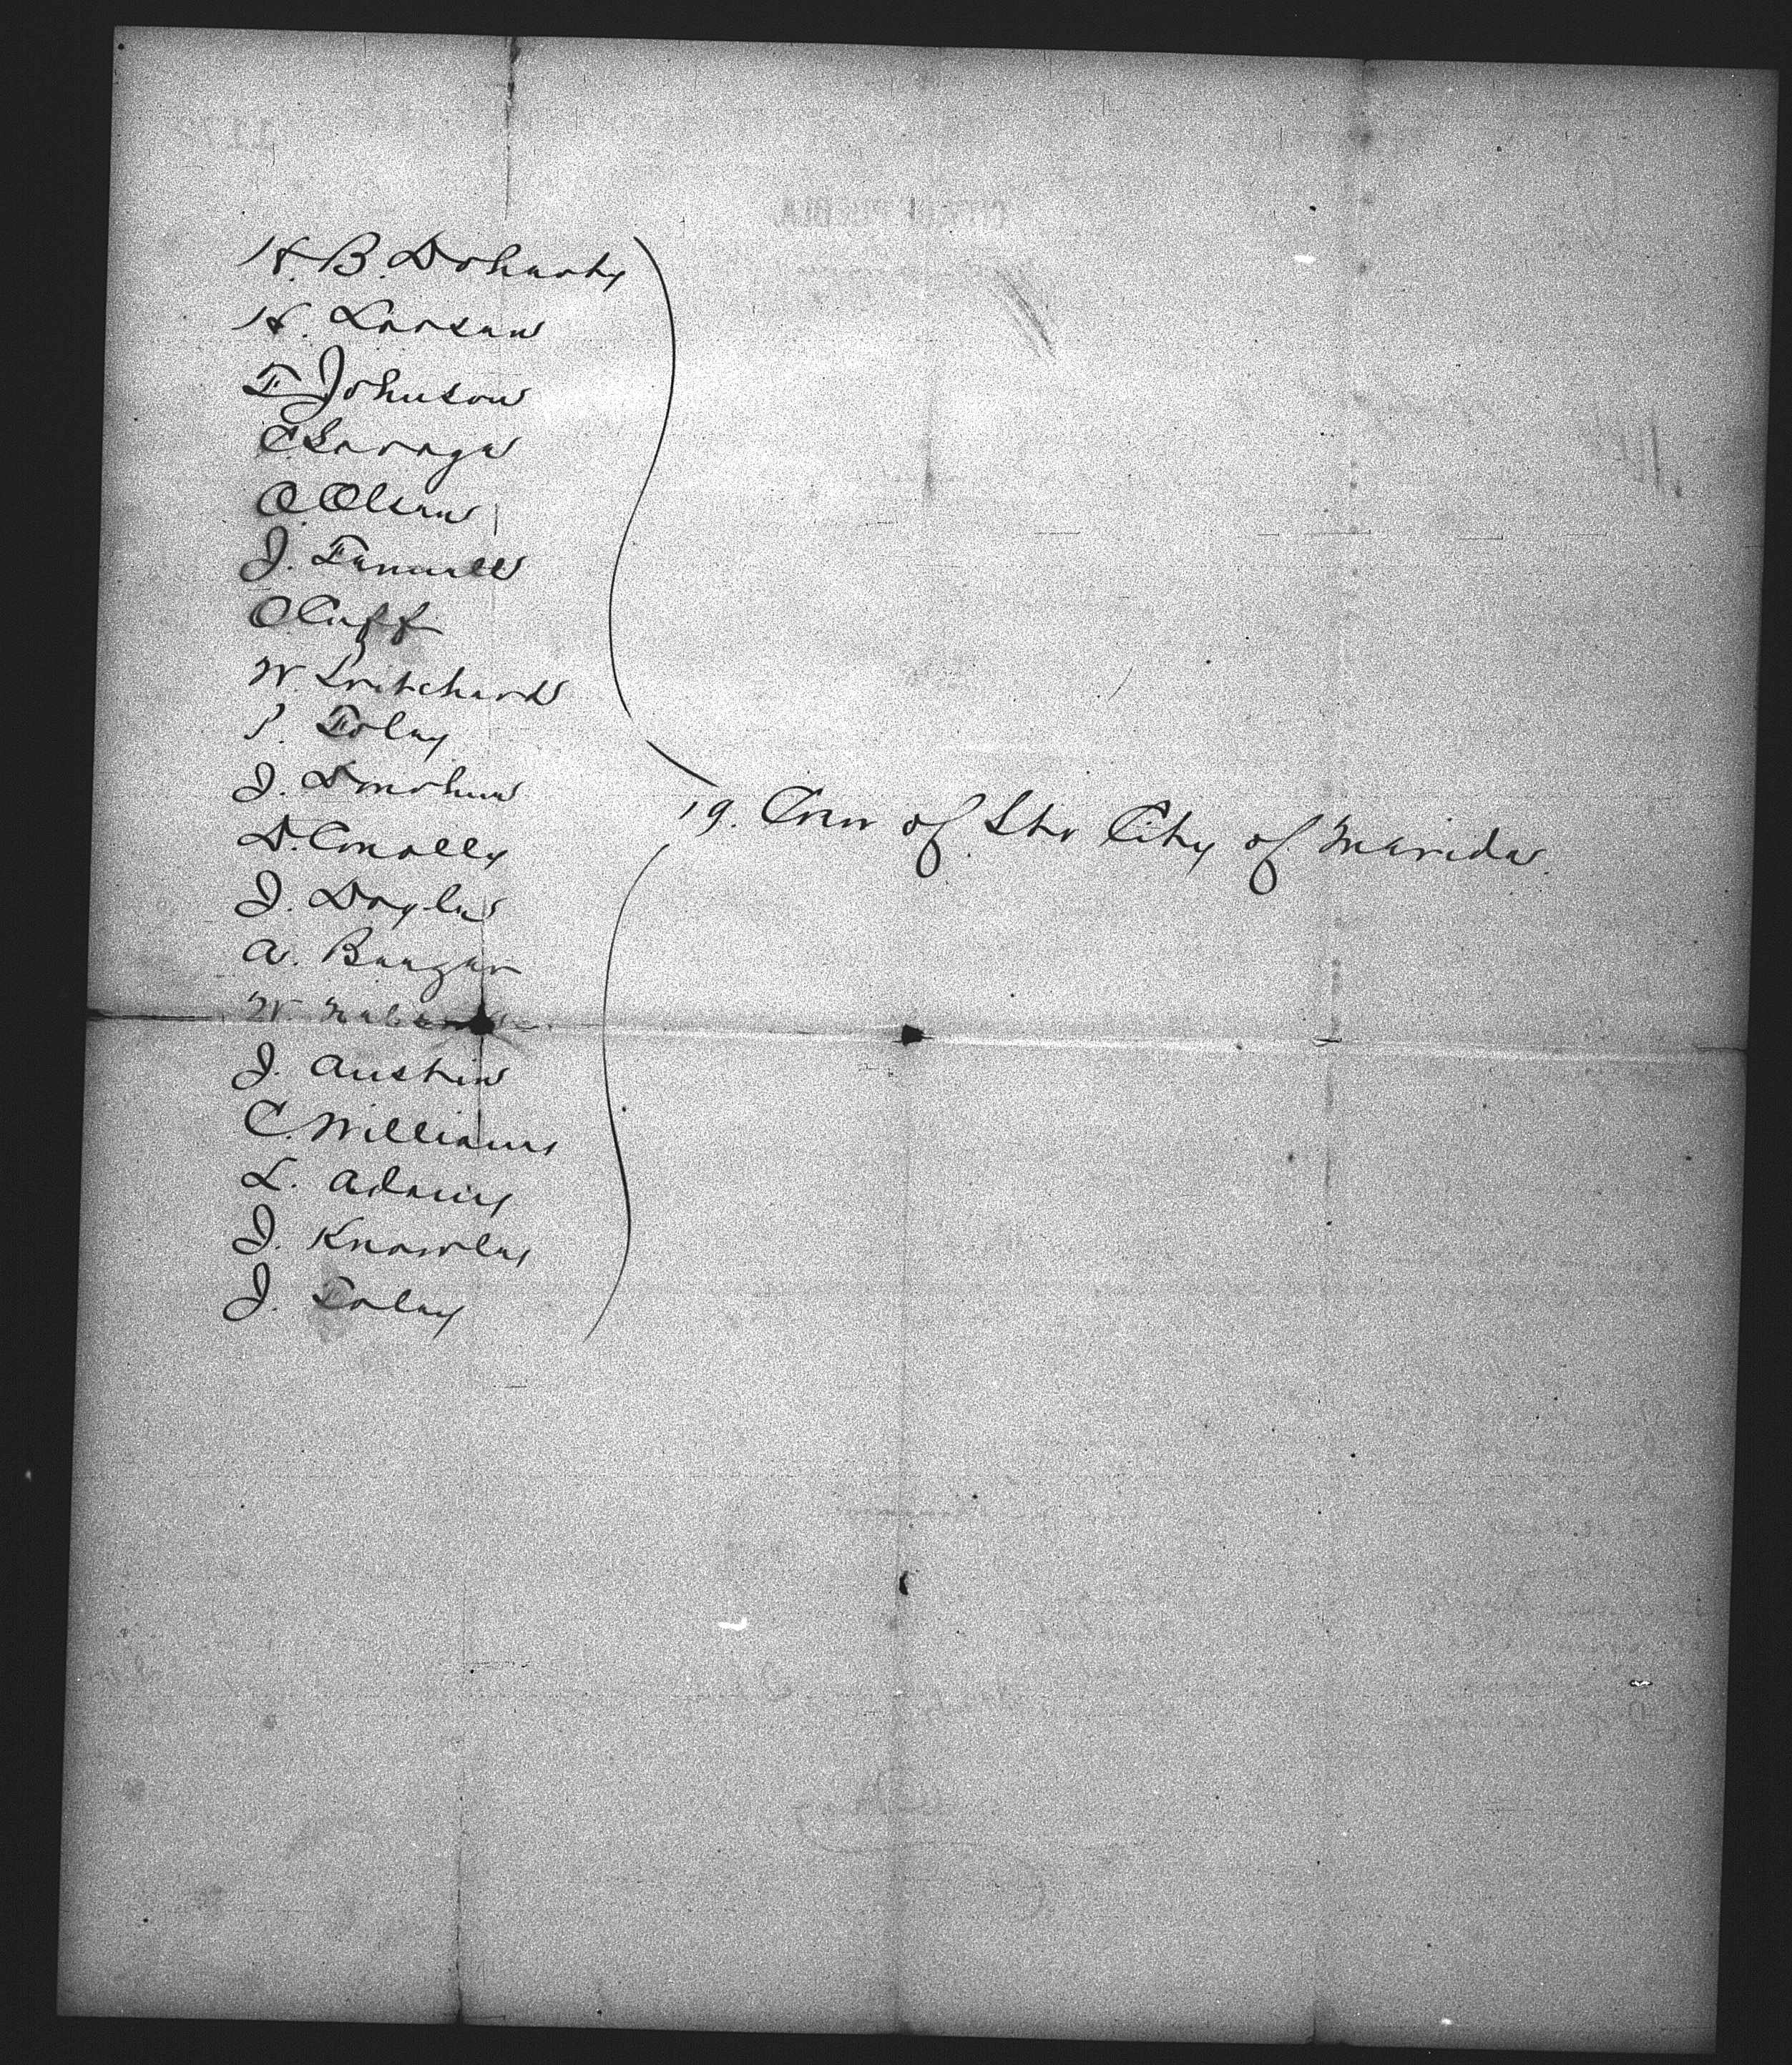 H. B. Doherty
H. Larsen
F Johnson
C Savage
O Olsen
J.
O Cuff
W. Pritchard
P. Foley
J. Donohue
D. Conolly
J. Doyle
A. Banger
W.
J. Austin
C. Williams
L. Adams
J. Knowles
J. Foley
19. Crew of Str City of Merida